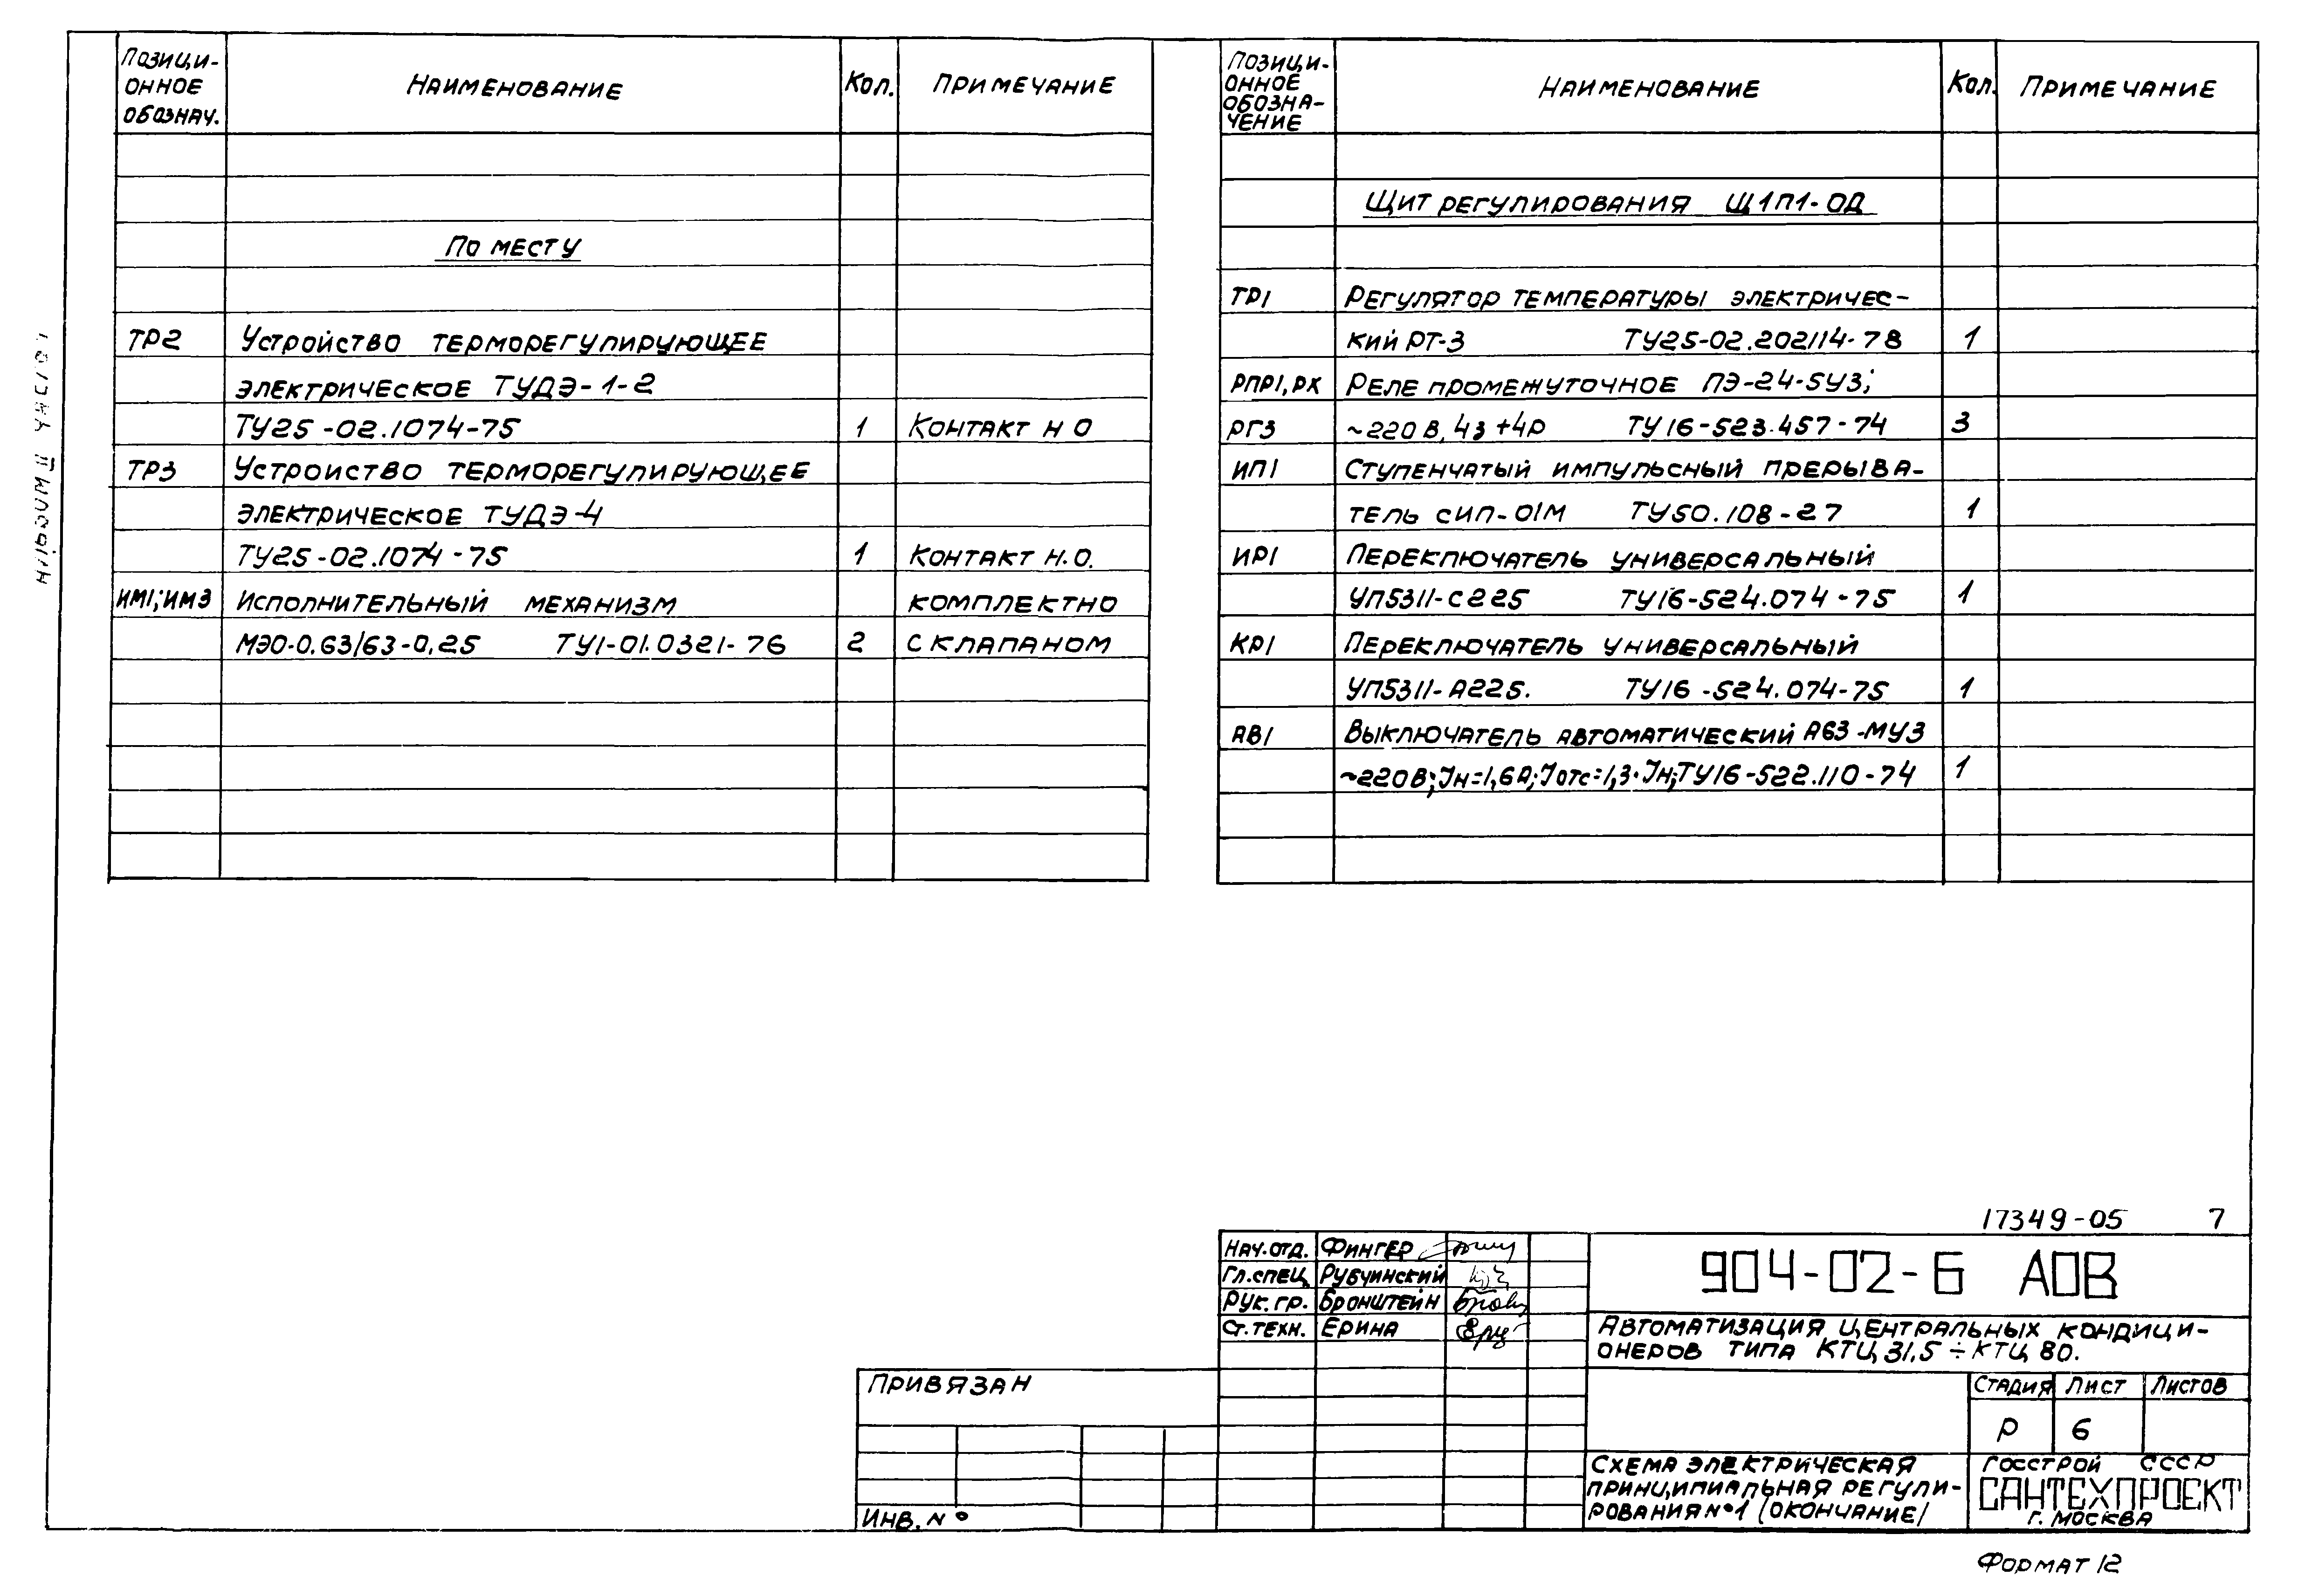 Позици-
онное
обознач.
Наименование
Кол.
Примечание
По месту
ТР2 Устройство терморегулирующее
электрическое ТУДЭ-1-2
ТУ25-02.1074-75 1 Контакт Н О
ТР3 Устройство терморегулирующее
электрическое ТУДЭ-4
ТУ25-02.1074-75 1 Контакт Н.О.
ИМ1; ИМ3 Исполнительный механизм комплектно
МЭО-0.63/63-0,25 ТУ1-01.0321-76 2 с клапаном
Позици-
онное
обозна-
чение
Наименование
Кол.
Примечание
Щит регулирования Щ1П1-ОД
ТР1 Регулятор температуры электричес-
кий РТ-3 ТУ25-02.202114-78 1
РПР1, РХ Реле промежуточное ПЭ-24-5У3;
РГ3 ~220В, 4з+4р ТУ16-523.457-74 3
ИП1 Ступенчатый импульсный прерыва-
тель СИП-01М ТУ50.108-27 1
ИР1 Переключатель универсальный
УП5311-С225 ТУ16-524.074-75 1
КР1 Переключатель универсальный
УП5311-А225. ТУ16-524.074-75 1
АВ1 Выключатель автоматический А63-МУ3
~220В; Jн=1,6А; Jотс=1,3·Jн; ТУ16-522.110-74 1
17349-05 7
Нач.отд. Фингер
Гл.спец Рубчинский
Рук.гр. Бронштейн
Ст.техн. Ерина
904-02-6 АОВ
Автоматизация центральных кондици-
онеров типа КТЦ 31,5÷КТЦ 80.
Привязан
Инв. №
Стадия Лист Листов
Р 6
Схема электрическая
принципиальная регули-
рования №1 /окончание/
Госстрой СССР
САНТЕХПРОЕКТ
г. Москва
Формат 12